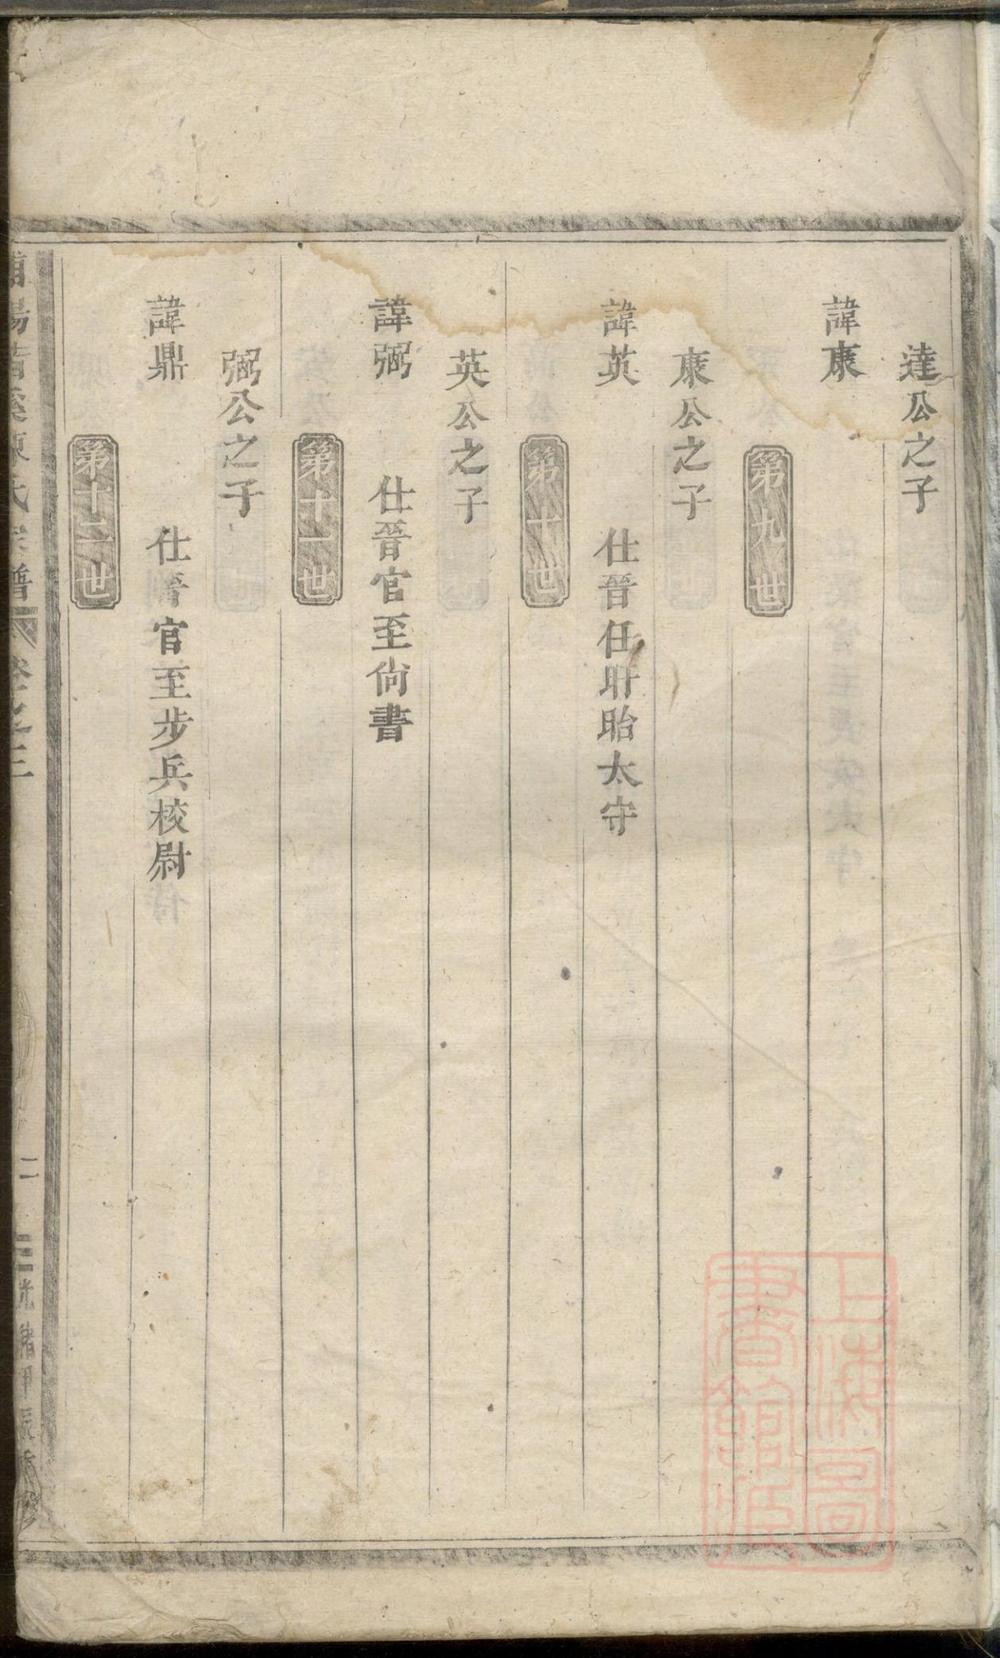 達公之子
諱康
第九世
康公之子
諱英 仕晉任盱眙太守
第十世
英公之子
諱弼 仕晉官至尚書
第十一世
弼公之子
諱鼎 仕晉官至步兵校尉
第十二世
陳氏宗譜 卷之三 二 光緒甲辰
上海圖
書館藏